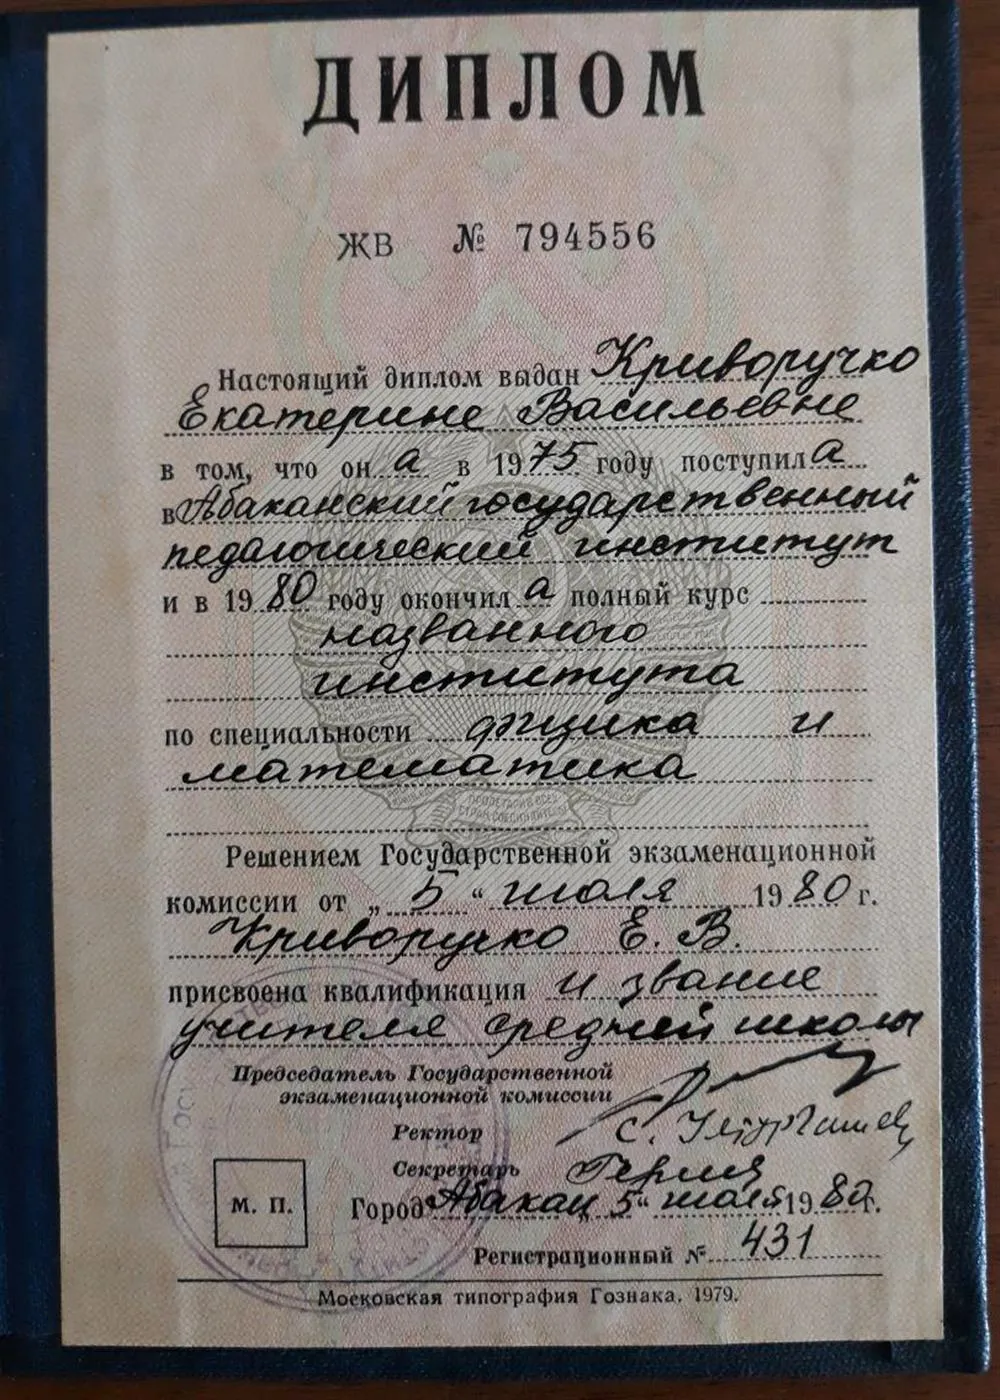 ДИПЛОМ
ЖВ № 794556
Настоящий диплом выдан Криворучко
Екатерине Васильевне
в том, что он а в 1975 году поступил а
в Абаканский государственный
педагогический институт
и в 1980 году окончил а полный курс
названного
института
по специальности физика и
математика
ПРОЛЕТАРИИ ВСЕХ
СТРАН, СОЕДИНЯЙТЕСЬ
Решением Государственной экзаменационной
комиссии от „5“ июля 1980 г.
Криворучко Е. В.
присвоена квалификация и звание
учителя средней школы
Председатель Государственной
экзаменационной комиссии
Ректор
Секретарь
М. П.
Город Абакан „5“ июля 1980 г.
Регистрационный № 431
Московская типография Гознака. 1979.